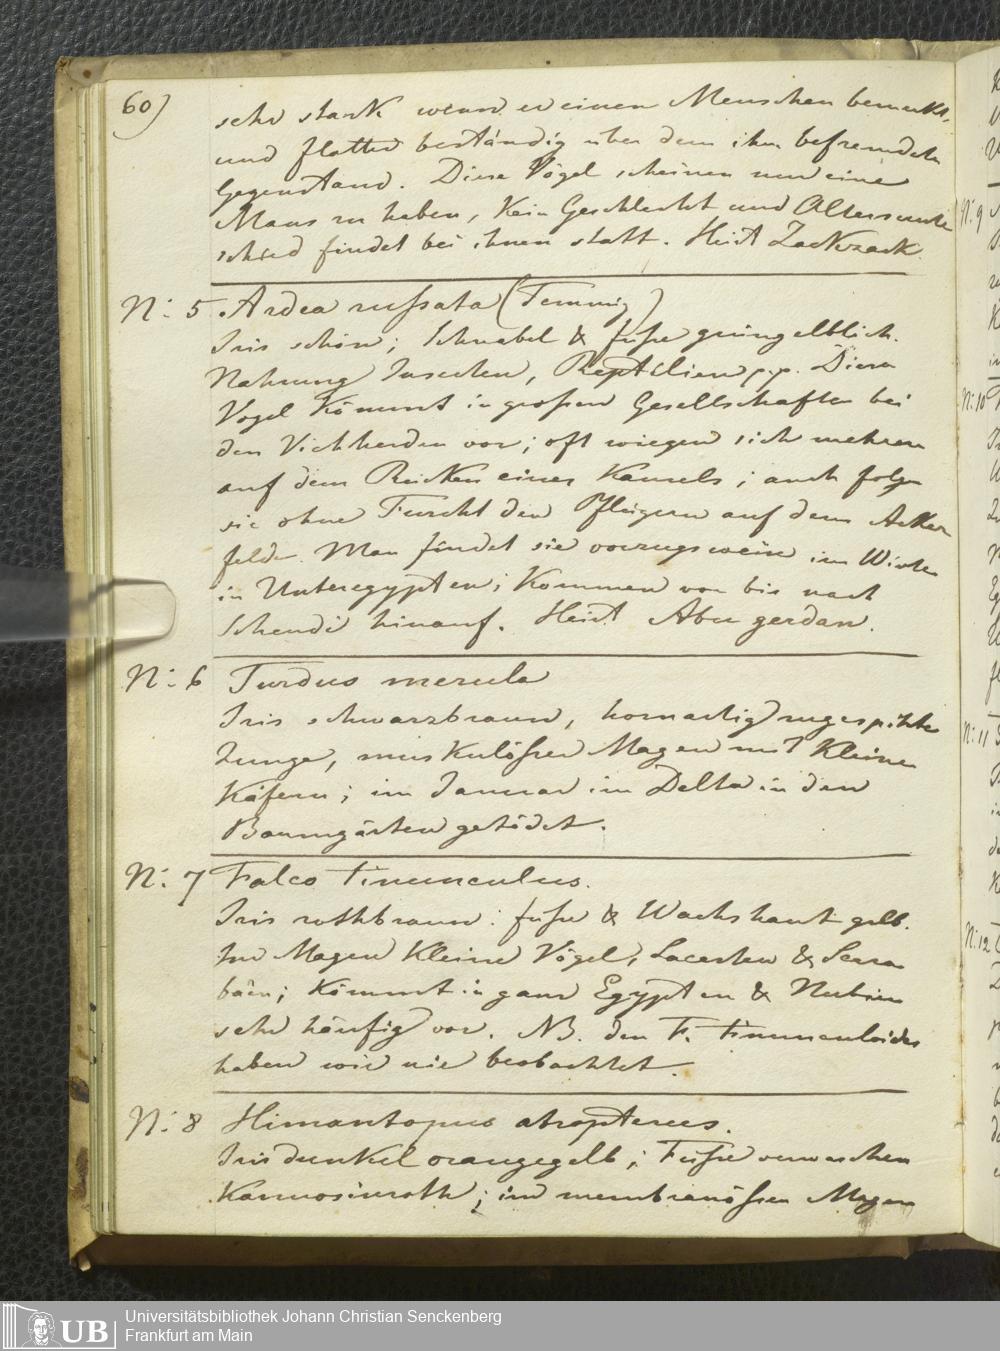 60)
sehr stark wenn er einen Menschen bemerkt,
und flattert beständig über dem ihm befremdeten
Gegenstand. Diese Vögel scheinen nur eine
Maus zu haben, kein Geschlecht und Altersunter
schied findet bei ihnen statt. Heist Zackzack.
N: 5 Ardea russata (Temmig)
Iris schön; Schnabel & füsse grüngelblich.
Nahrung Insecten, Reptilien p.p. Dieser
Vogel kömmt in grossen Gesellschaften bei
den Viehherden vor; oft wiegen sich mehrere
auf dem Rücken eines Kameels; auch folgen
sie ohne Furcht den Pflügern auf dem Acker
felde. Man findet sie vorzugsweise im Winter
in Unteregypten; kommen vor bis nach
Schendi hinauf. Heist Abu gerdan.
N: 6 Turdus merula
Iris schwarzbraun, hornartig zugespitzte
Zunge, muskulösser Magen mit kleinen
Käfern; im Januar im Delta in den
Baumgärten getödet.
N: 7 Falco tinunculus.
Iris rothbraun: füsse & Wachshaut gelb.
Im Magen kleine Vögel, Lacerten & Scara
bäen; kömmt in ganz Egypten & Nubien
sehr häufig vor. NB. den F. tinunculoides
haben wir nie beobachtet.
N: 8 Himantopus atropterus.
Iris dunkel orangegelb; Füsse verwaschen
Karmosinroth; im membranössen Magen
N: 9
N: 10
N: 11
N: 12
UB
Universitätsbibliothek Johann Christian Senckenberg
Frankfurt am Main